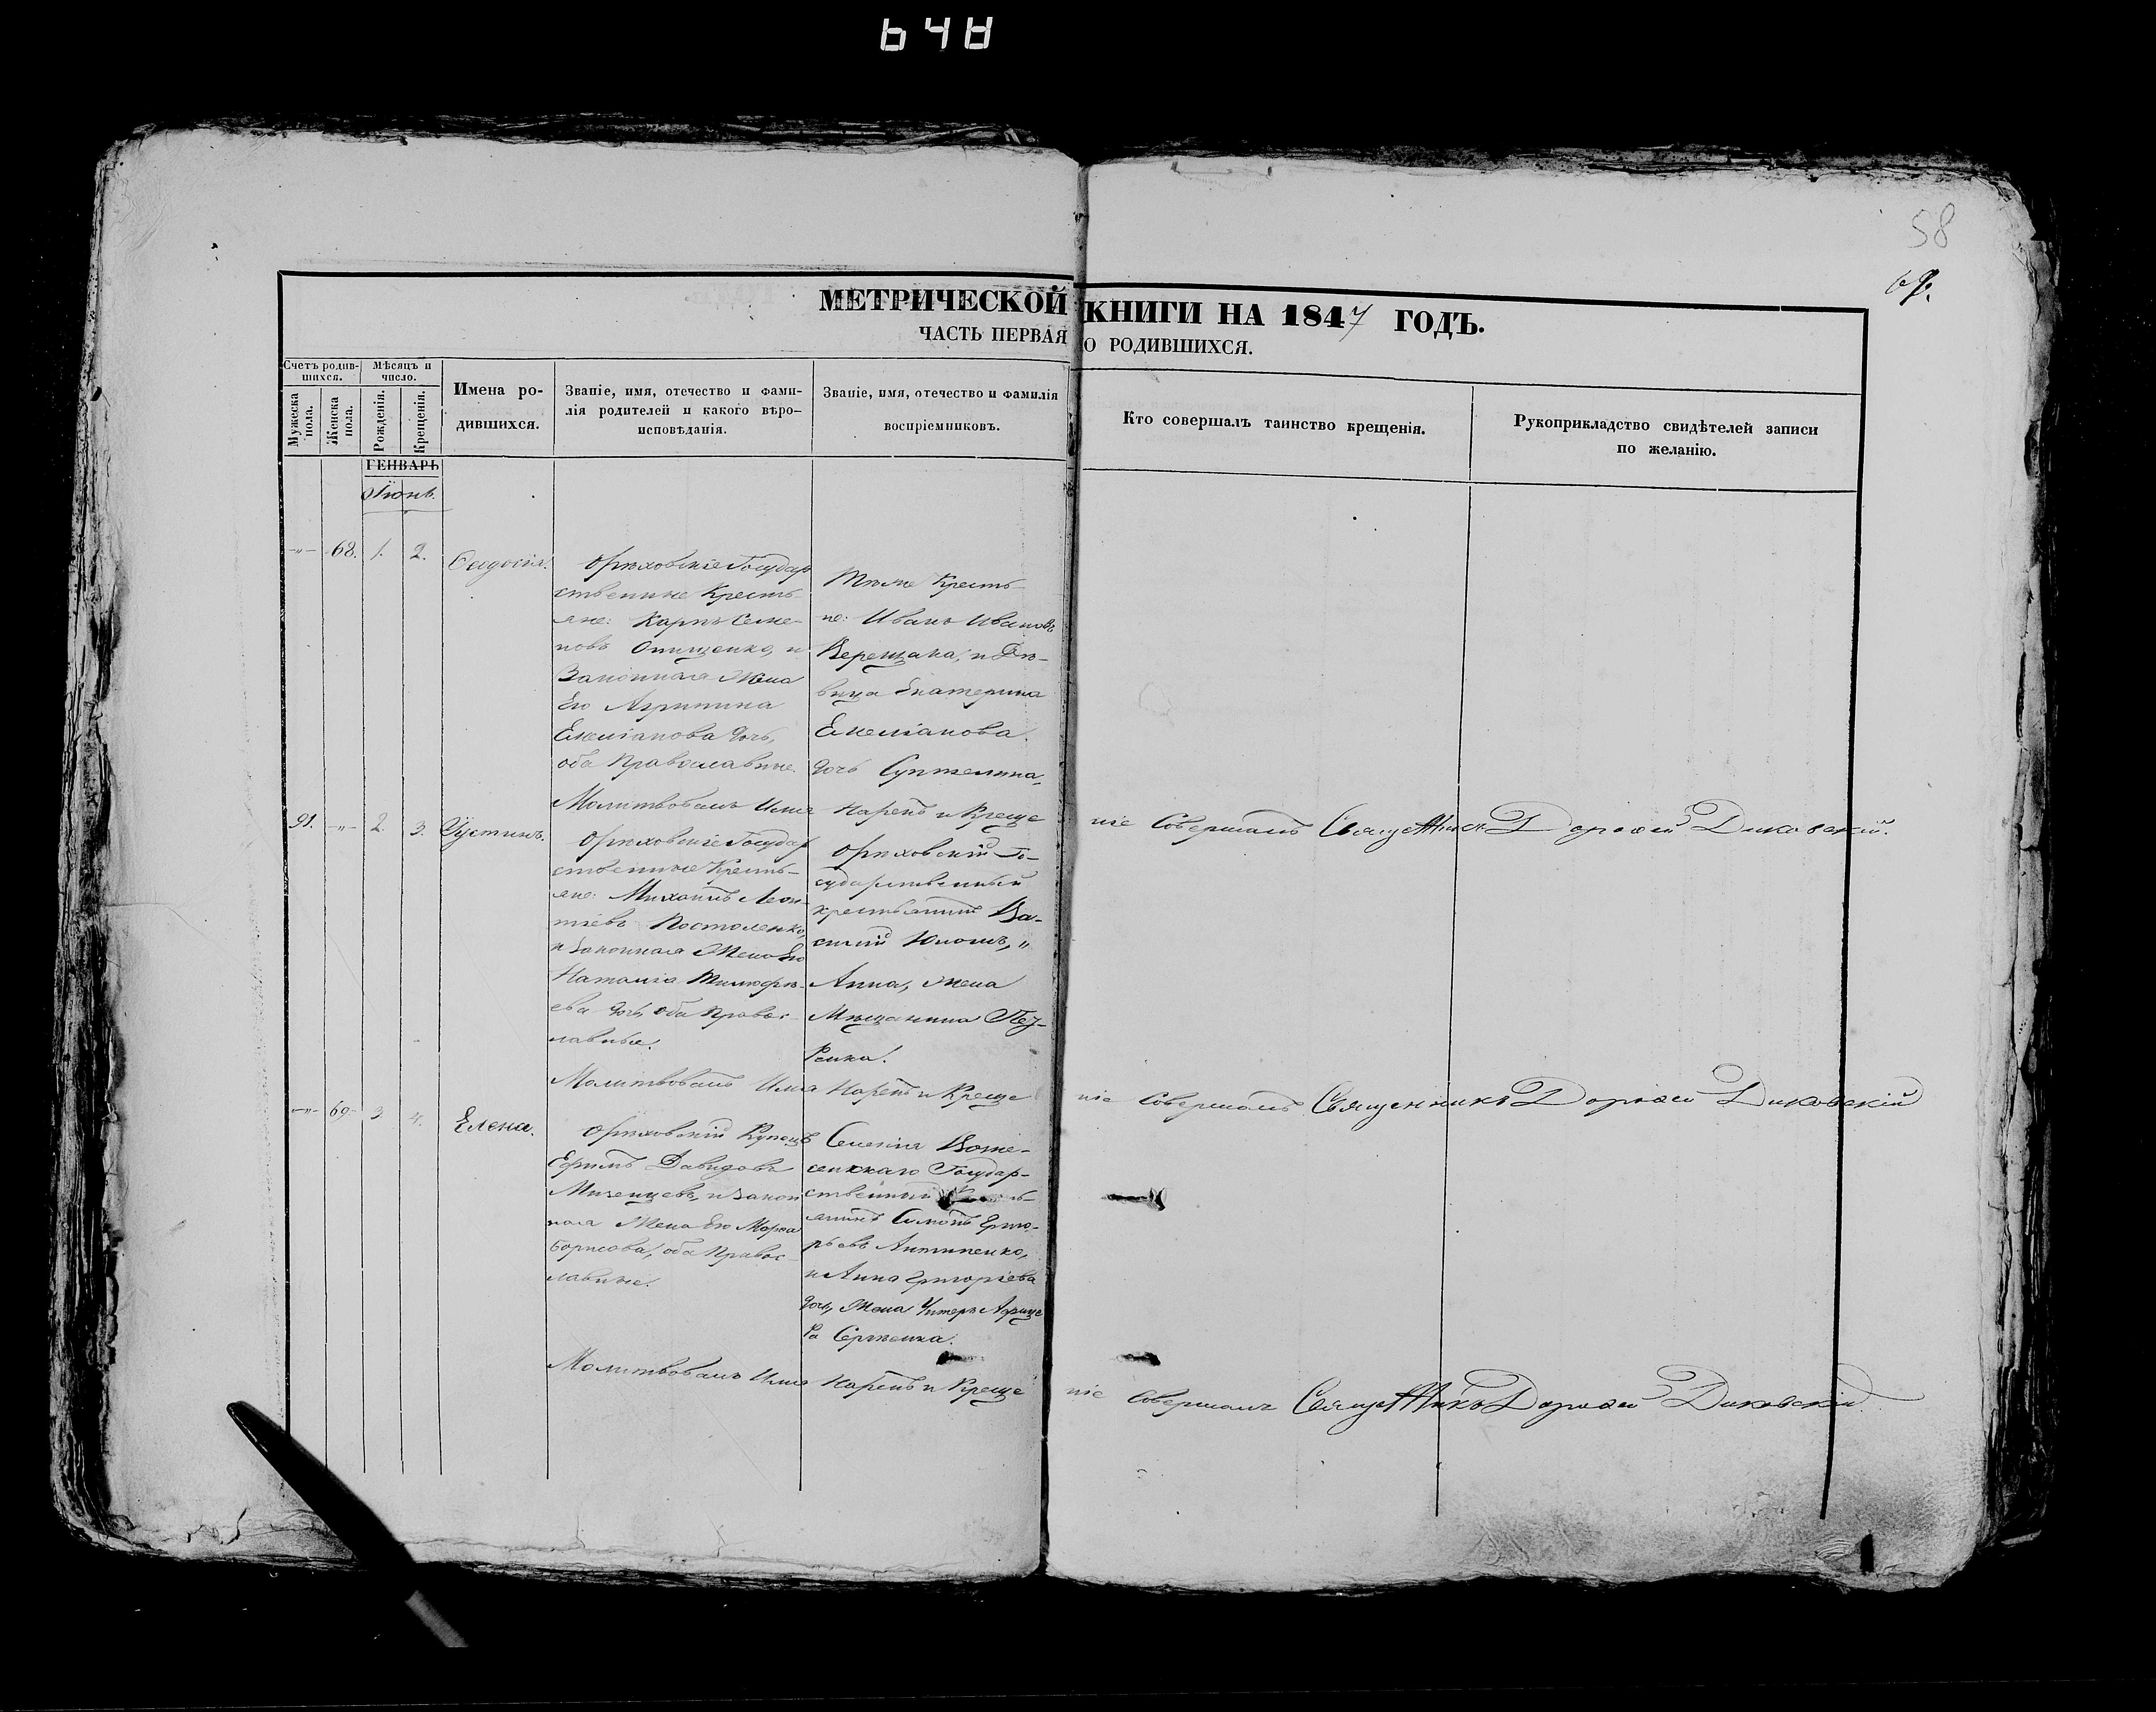 648
58
67.
МЕТРИЧЕСКОЙ КНИГИ НА 1847 ГОДЪ.
ЧАСТЬ ПЕРВАЯ О РОДИВШИХСЯ.
Счетъ родив-
шихся.
Мѣсяцъ и
число.
Мужеска
пола.
Женска
пола.
Рожденія.
Крещенія.
Имена ро-
дившихся.
Званіе, имя, отечество и фами-
лія родителей и какого вѣро-
исповѣданія.
Званіе, имя, отечество и фамилія
воспріемниковъ.
Кто совершалъ таинство крещенія.
Рукоприкладство свидѣтелей записи
по желанію.
ГЕНВАРЬ
Іюнь.
-"- 68. 1. 2.
Ѳеодосія.
Орѣховскіе Государ
ственные Кресть-
яне: Карпъ Семе-
новъ Онищенко, и
Законная Жена
Его Агрипина
Емеліанова дочь,
оба Православные.
Тѣже Кресть-
не: Иванъ Ивановъ
Верещака, и Дѣ-
вица Екатерина
Емеліанова
дочь
Молитвовалъ Имя Нарекъ и Креще ніе Совершалъ Священникъ Дороѳей Диковскій.
91. -"- 2. 3.
Устинъ.
Орѣховскіе Государ
ственные Кресть-
яне: Михаилъ Леон-
тіевъ Постоленко,
и Законная Жена Его
Наталія Тимоѳѣ-
ева дочь, оба Правос-
лавные.
Орѣховскій Го-
сударственный
крестьянинъ Ва-
силій
Анна, жена
Мѣщанина
Молитвовалъ Имя Нарекъ и Креще ніе Совершалъ Священникъ Дороѳей Диковскій
-"- 69 3 4.
Елена.
Орѣховскій Купецъ
Ефимъ Давидовъ
Мизенцевъ, и Закон
ная Жена Его Марѳа
Борисова, оба Правос-
лавные.
Селенія Возне-
сенскаго Государ-
ственный
янинъ Симонъ Григо-
рьевъ Антипенко,
и Анна Григоріева
дочь, Жена
Сергѣенка.
Молитвовалъ Имя Нарекъ и Креще ніе Совершалъ Священникъ Дороѳей Диковскій.